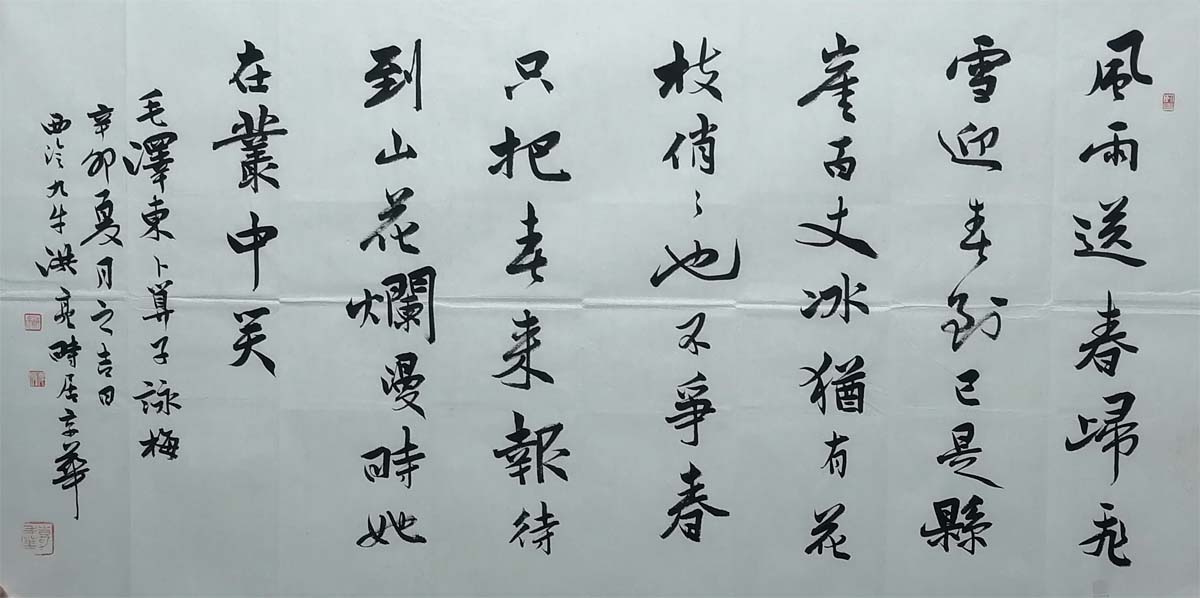 風雨送春歸飛
雪迎春到已是縣
崖百丈冰猶有花
枝俏〻也不爭春
只把春来報待
到山花爛漫時她
在叢中笑
毛澤東卜算子詠梅
辛卯夏月之吉日
西泠九牛洪亮時居京華